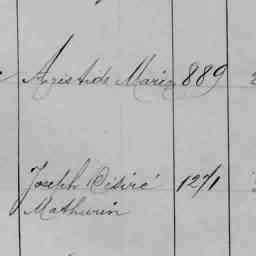 Aristide Maria 889
Joseph Désiré 1271
Mathurin